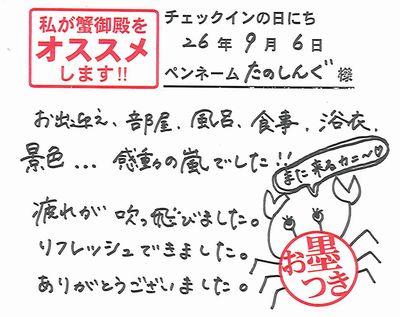 私が蟹御殿を
オススメ
します!!
チェックインの日にち
26年9月6日
ペンネーム たのしんぐ 様
お出迎え、部屋、風呂、食事、浴衣、
景色... 感動の嵐でした!!
また来るカニ〜♡
疲れが吹っ飛びました。
リフレッシュできました。
ありがとうございました。
お墨つき